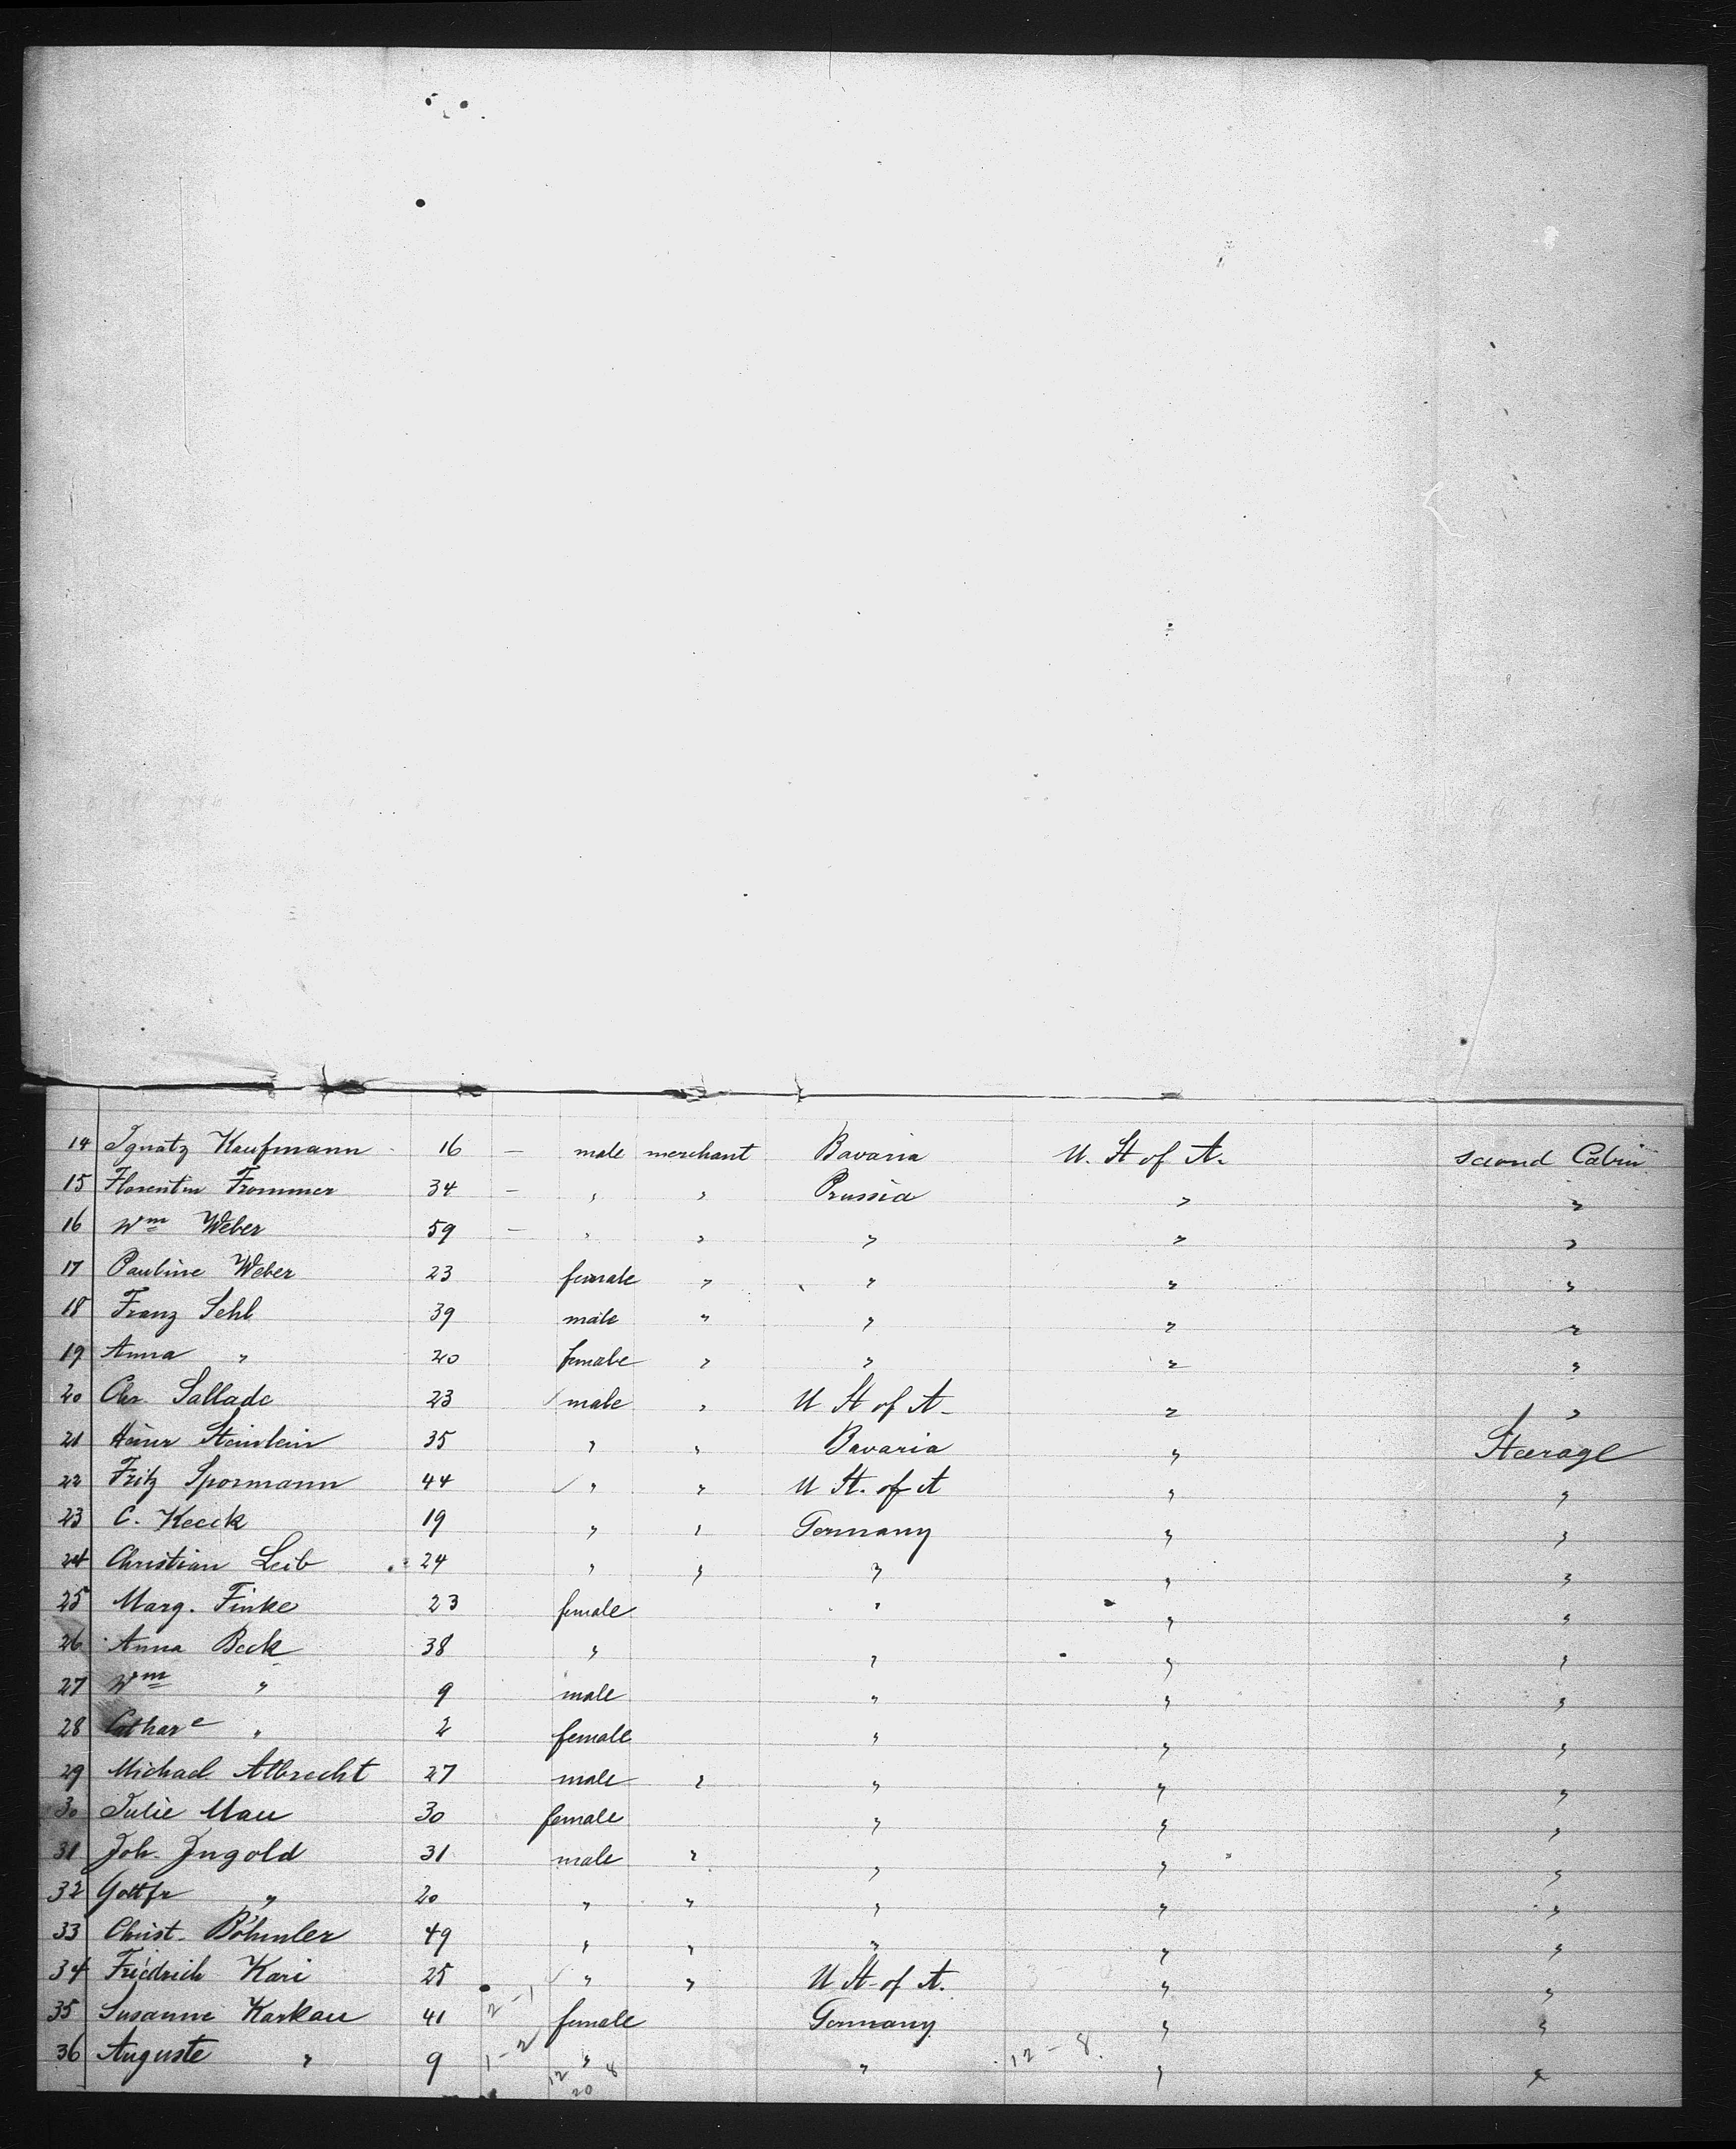 14 Ignatz Kaufmann 16 — male merchant Bavaria U. St of A. second Cabin
15 Florentin Frommer 34 — " " Prussia " "
16 Wm Weber 59 — " " " " "
17 Pauline Weber 23 female " " " "
18 Franz Sehl 39 male " " " "
19 Anna " 20 female " " " "
20 Chr. Sallade 23 male " U St of A- " "
21 Steinlein 35 " " Bavaria " Steerage
22 Fritz Spormann 44 " " U St. of A " "
23 C. Keeck 19 " " Germany " "
24 Christian Leib 24 " " " " "
25 Marg. Finke 23 female " " "
26 Anna Beck 38 " " " "
27 Wm " 9 male " " "
28 Cathar e " 2 female " " "
29 Michael Albrecht 27 male " " " "
30 Julie Mau 30 female " " "
31 Joh. Ingold 31 male " " " "
32 Gottfr " 20 " " " " "
33 Christ. Böhmler 49 " " " " "
34 Friedrich Kari 25 " " U St-of A. " "
35 Susanne Karkau 41 2-1 female Germany " "
36 Auguste " 9 1-2 " " 12-8. " "
12 8
20